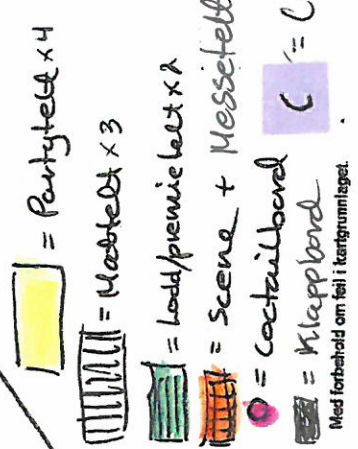 = Partytelt x 4
= Mattelt x 3
= Lodd/premietelt x 2
= Scene + Messetelt
= Coctailbord
= Klappbord
C = C
Med forbehold om feil i kartgrunnlaget.